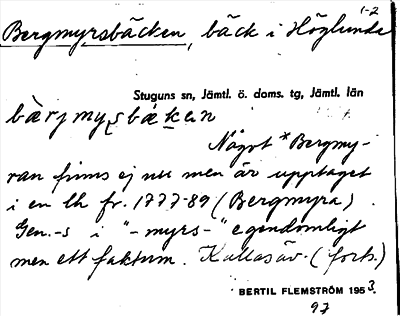 1-2
Bergmyrsbäcken, bäck i Höglunda
Stuguns sn, Jämtl. ö. doms. tg, Jämtl. län
bær̀jmyʂbækɛn
Något *Bergmy-
ran finns ej nu men är upptaget
i en lh fr. 1777-89 (Bergmyra).
Gen. -s i "-myrs-" egendomligt
men ett faktum. Kallas äv. (forts.)
BERTIL FLEMSTRÖM 1953.
97